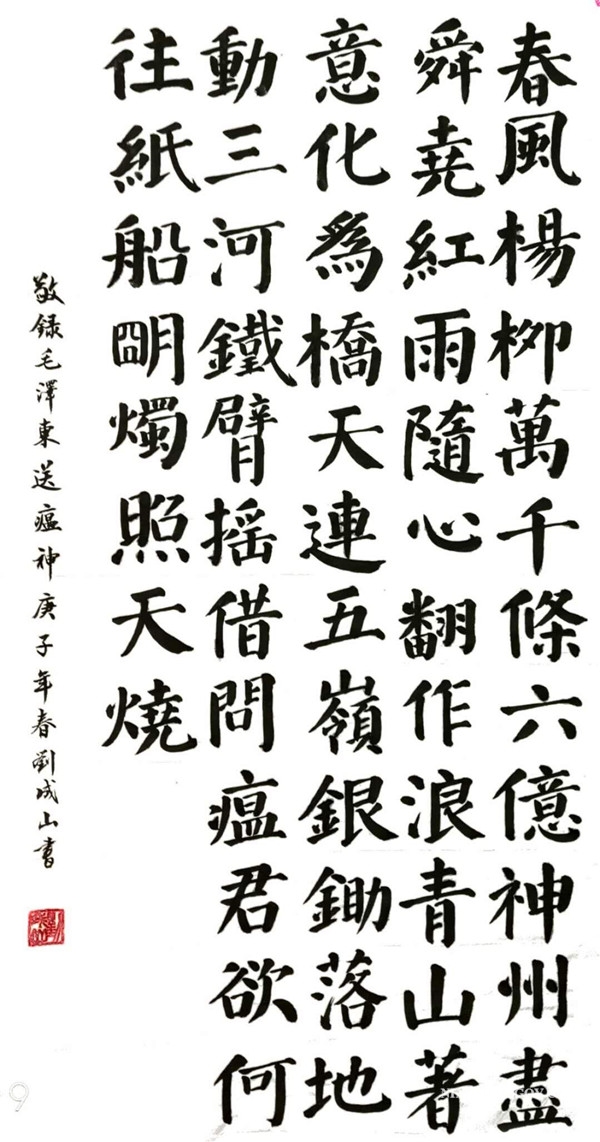 春風楊栁萬千條六億神州盡
舜堯紅雨隨心翻作浪青山著
意化為橋天連五嶺銀鋤落地
動三河鐵臂摇借問瘟君欲何
往紙船明燭照天燒
敬録毛澤東送瘟神庚子年春劉成山書